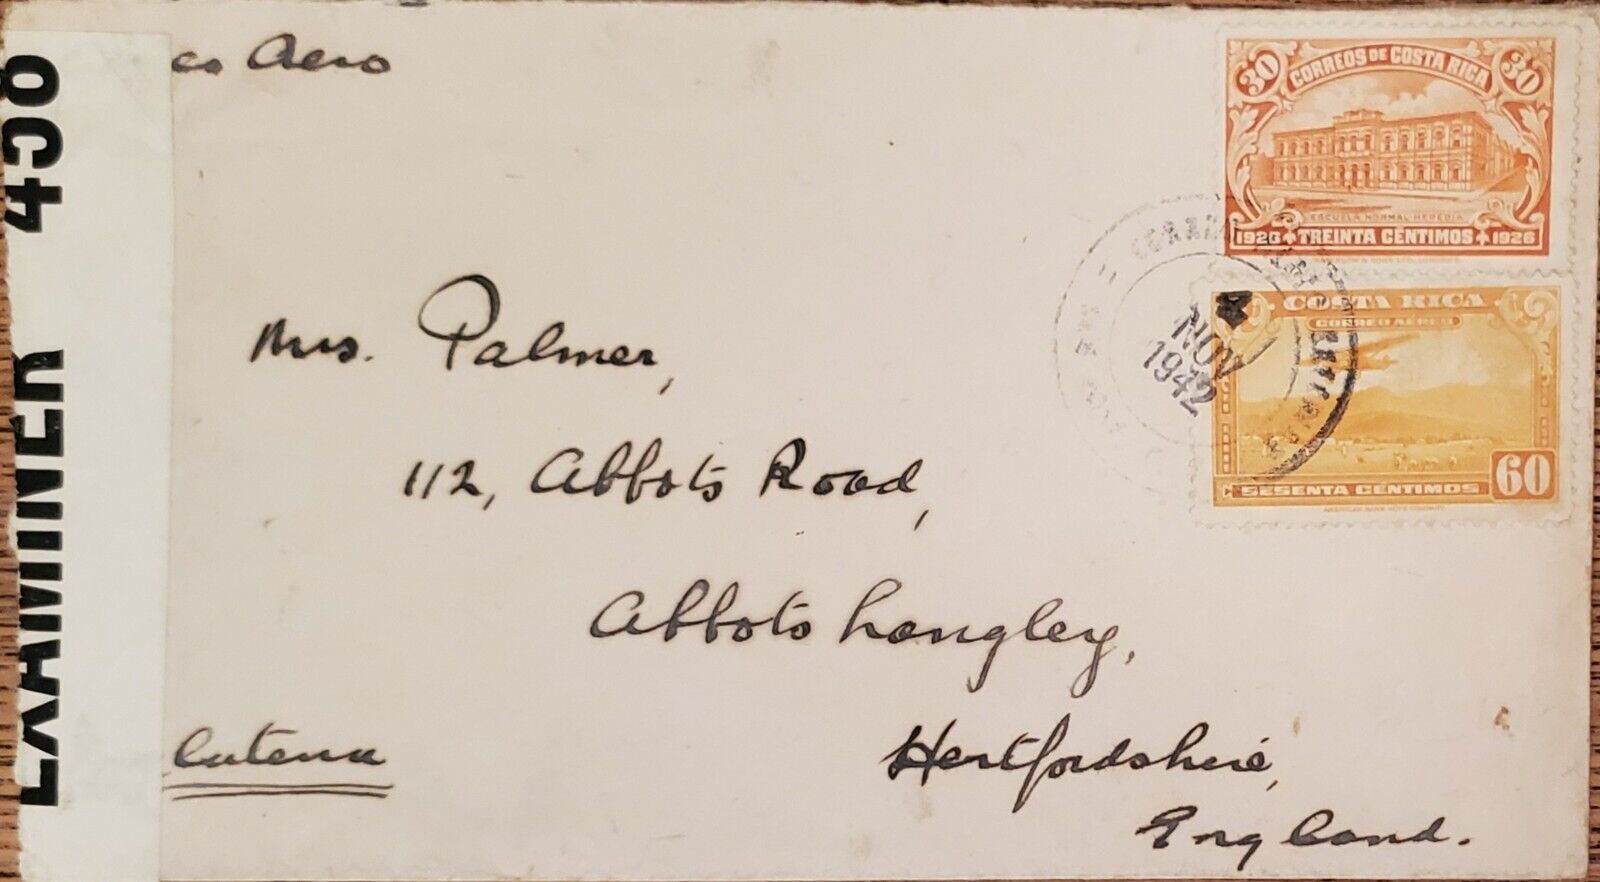 EXAMINER 458
co Aero
30 CORREOS DE COSTA RICA 30
ESCUELA NORMAL HEREDIA
1926 TREINTA CÉNTIMOS 1926
COSTA RICA
CORREO AEREO
SESENTA CÉNTIMOS 60
AMERICAN BANK NOTE COMPANY
NOV
1942
Mrs. Palmer,
112, Abbots Road,
Abbots Langley,
Hertfordshire,
England.
laterra